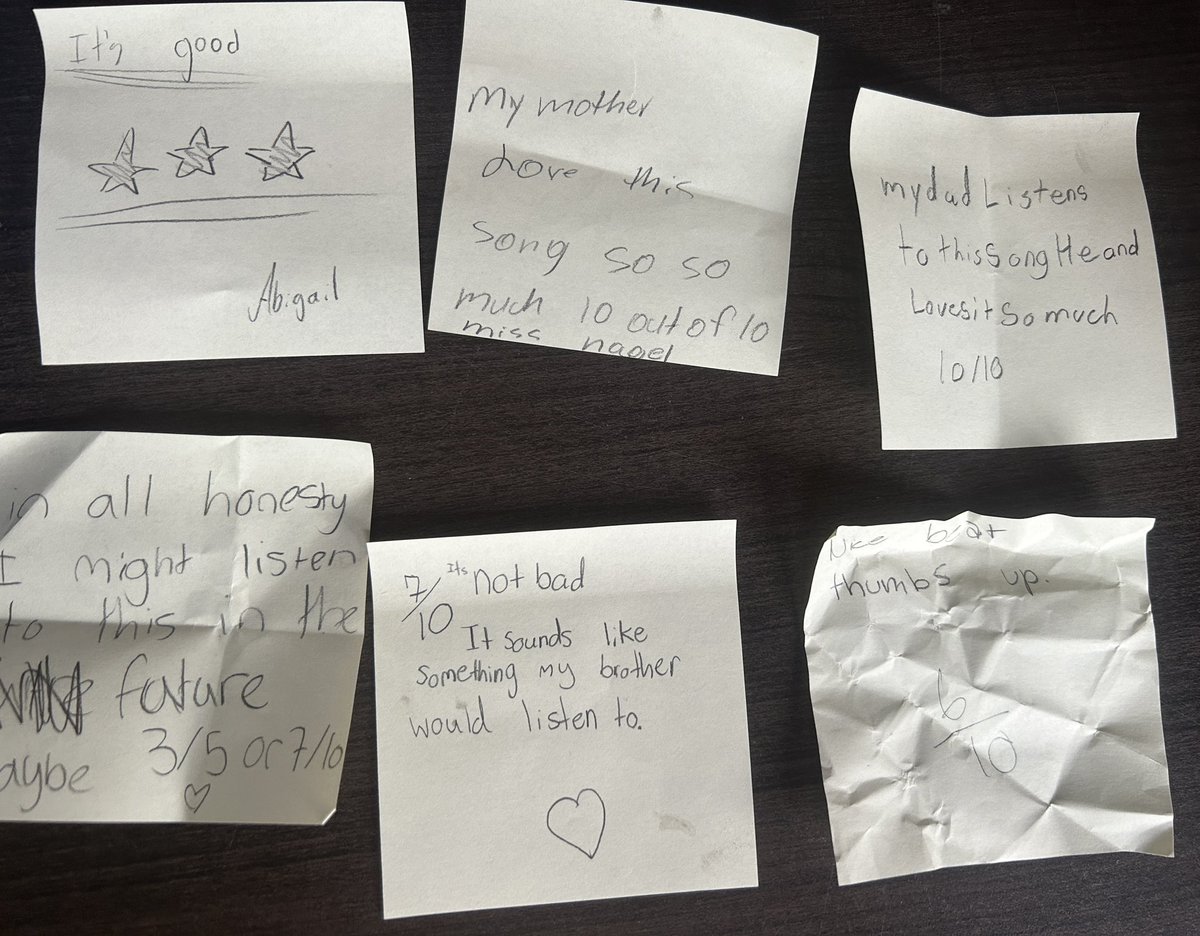 It's good
Abigail
My mother
Love this
song so so
much 10 out of 10
miss nagel
my dad Listens
to this song He and
Loves it So much
10/10
in all honesty
I might listen
to this in the
future
aybe 3/5 or 7/10
7/10 Its not bad
It sounds like
something my brother
would listen to.
Nice beat
thumbs up.
6/10